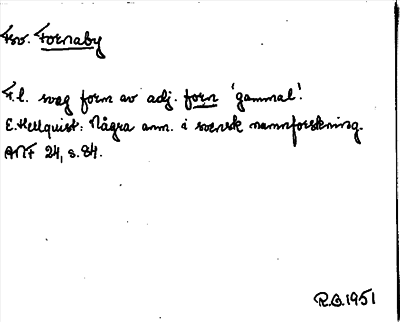 Fsv. Fornaby
F.l. svag form av adj. forn 'gammal'.
E. Hellquist: Några anm. i svensk namnforskning.
ANF 24, s. 84.
R.O. 1951